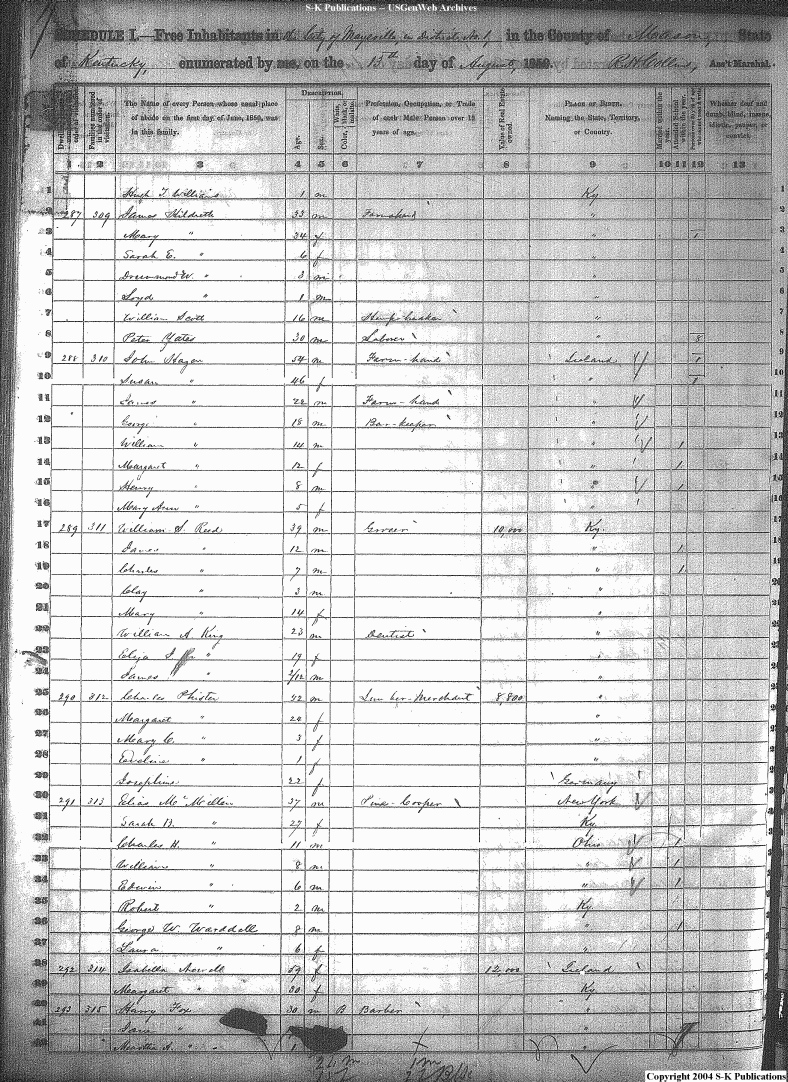 S-K Publications – USGenWeb Archives
SCHEDULE I.—Free Inhabitants in the City of Maysville, in District No. 1, in the County of Mason, State
of Kentucky, enumerated by me, on the 15th day of August, 1850. Ass't Marshal.
DESCRIPTION.
The Name of every Person whose usual place of abode on the first day of June, 1850, was in this family.
Families numbered in the order of visitation.
Age.
Sex.
Color, White, black, or mulatto.
Profession, Occupation, or Trade of each Male Person over 15 years of age.
Value of Real Estate owned.
PLACE OF BIRTH. Naming the State, Territory, or Country.
Married within the year.
Whether deaf and dumb, blind, insane, idiotic, pauper, or convict.
1 2 3 4 5 6 7 8 9 10 11 12 13
1 Hugh T. Williams 1 m Ky
2 287 309 James Hildreth 33 m Farmhand "
3 Mary " 34 f " 1
4 Sarah E. " 6 f "
5 Drummond W. " 3 m "
6 Loyd " 1 m "
7 William Scott 16 m "
8 Peter Yates 30 m Laborer "
9 288 310 John Hagan 54 m Farm-hand Ireland 1
10 Susan " 46 f " 1
11 James " 22 m Farm-hand "
12 George " 18 m Bar-keeper "
13 William " 14 m " 1
14 Margaret " 12 f " 1
15 Henry " 8 m " 1
16 Mary Ann " 5 f "
17 289 311 William S. Reed 39 m Grocer 10,000 Ky.
18 James " 12 m " 1
19 Charles " 7 m " 1
20 Clay " 3 m "
21 Mary " 14 f "
22 William A. King 23 m Dentist "
23 Eliza " 19 f "
24 James " 2/12 m "
25 290 312 Charles Phister 42 m Lumber-Merchant 8,800 "
26 Margaret " 24 f "
27 Mary C. " 3 f "
28 Eveline " 1 f "
29 Josephine 22 f Germany
30 291 313 Elias McMillen 37 m Cooper New York
31 Sarah B. " 27 f Ky
32 Charles H. " 11 m Ohio 1
33 William " 8 m " 1
34 Edwin " 6 m " 1
35 Robert " 2 m Ky
36 George W. Warddell 8 m " 1
37 Laura " 6 f "
38 292 314 Isabella 59 f 12,000 Ireland
39 Margaret " 30 f Ky
40 293 315 Harry Fox 30 m B Barber "
41 Jane " "
42 Martha A. " "
Copyright 2004 S-K Publications